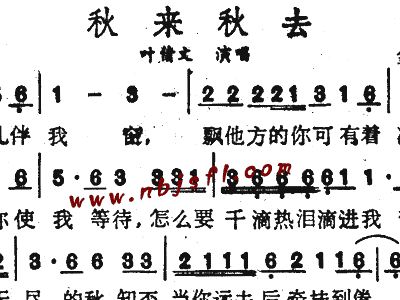 秋 来 秋 去
叶倩文 演唱
6 | 1 － 3 － | 2 2 2 2 1 3 1 6 |
伴 我 窗， 飘他方的你可有着
6 | 5 · 6 3 3 3 1 | 3 6 6 6 6 1 1 ·
www.nbjgfl.com
你使 我 等待，怎么要 千滴热泪滴进我
| 3 · 6 6 3 3 | 2 1 1 1 6 2 1 1 6 | 6
尽 的秋 知否 当你远去后 牵挂到倦